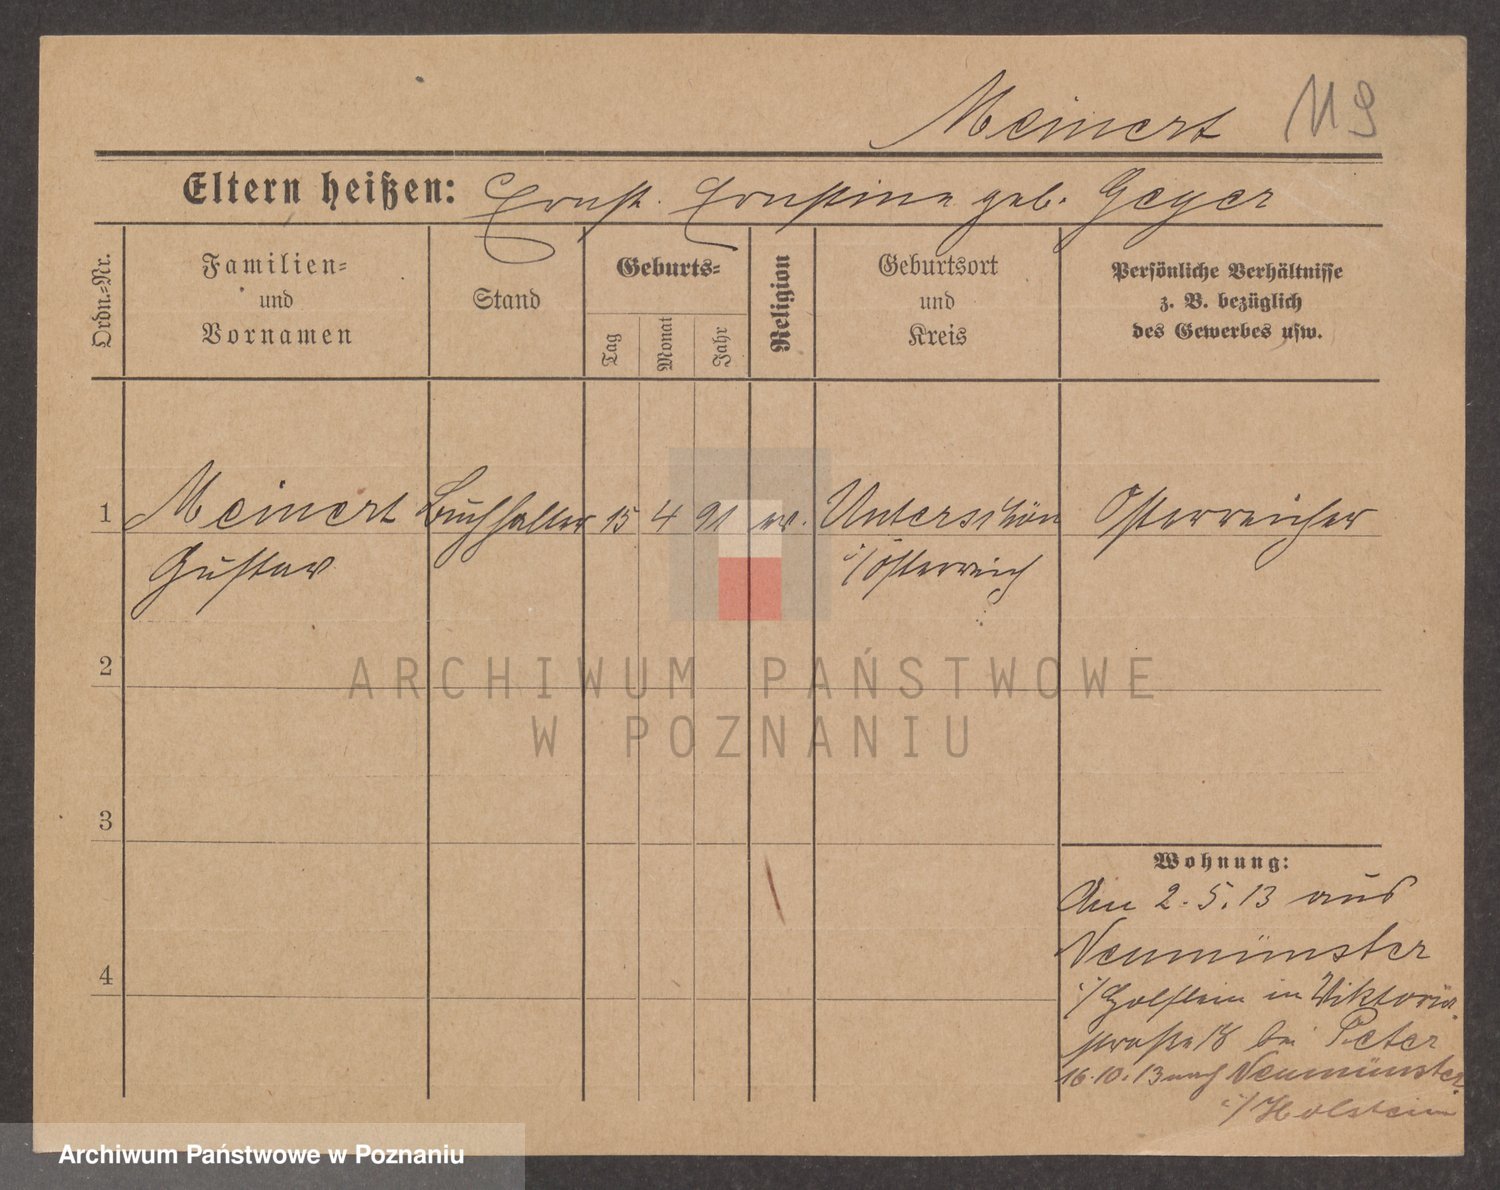 Meinert 119
Eltern heißen: Ernst. Ernstine geb. Geyer
Ordn.-Nr.
Familien-
und
Vornamen
Stand
Geburts-
Tag
Monat
Jahr
Religion
Geburtsort
und
Kreis
Persönliche Verhältnisse
z. B. bezüglich
des Gewerbes usw.
1 Meinert Buchhalter 15 4 91 ev. Unterschön Österreicher
Gustav i/Österreich
2
ARCHIWUM PAŃSTWOWE
W POZNANIU
3
Wohnung:
Am 2.5.13 aus
Neumünster
4
i/Holstein in Viktoria-
straße 18 bei Peter
16.10.13 nach Neumünster
i/Holstein
Archiwum Państwowe w Poznaniu